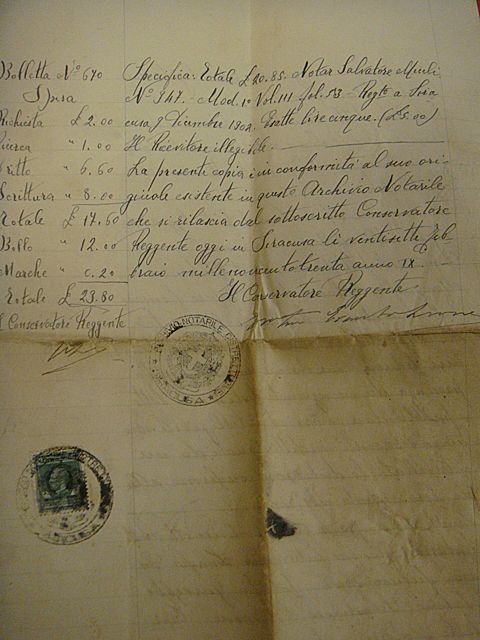 Bolletta Nº 670
Spesa
Richiesta £ 2.00
Ricerca " 1.00
Dritto " 6.60
Scrittura " 8.00
Totale £ 17.60
Bollo " 12.00
Marche " 0.20
Totale £ 23.80
Il Conservatore Reggente
Specifica: Totale £ 20.85. Notar Salvatore Miuli
Nº 947. Mod. 1º Vol. 111 fol. 53. Regto a Sira
cusa, 9 Dicembre 1902. Esatte lire cinque. (£5.00)
Il Ricevitore illegibile.
La presente copia è in conformità al suo ori
ginale esistente in questo Archivio Notarile
che si rilascia dal sottoscritto Conservatore
Reggente oggi in Siracusa li ventisette Feb
braio millenovecentotrenta anno IX.
Il Conservatore Reggente
ARCHIVIO NOTARILE DISTRETTUALE
SIRACUSA